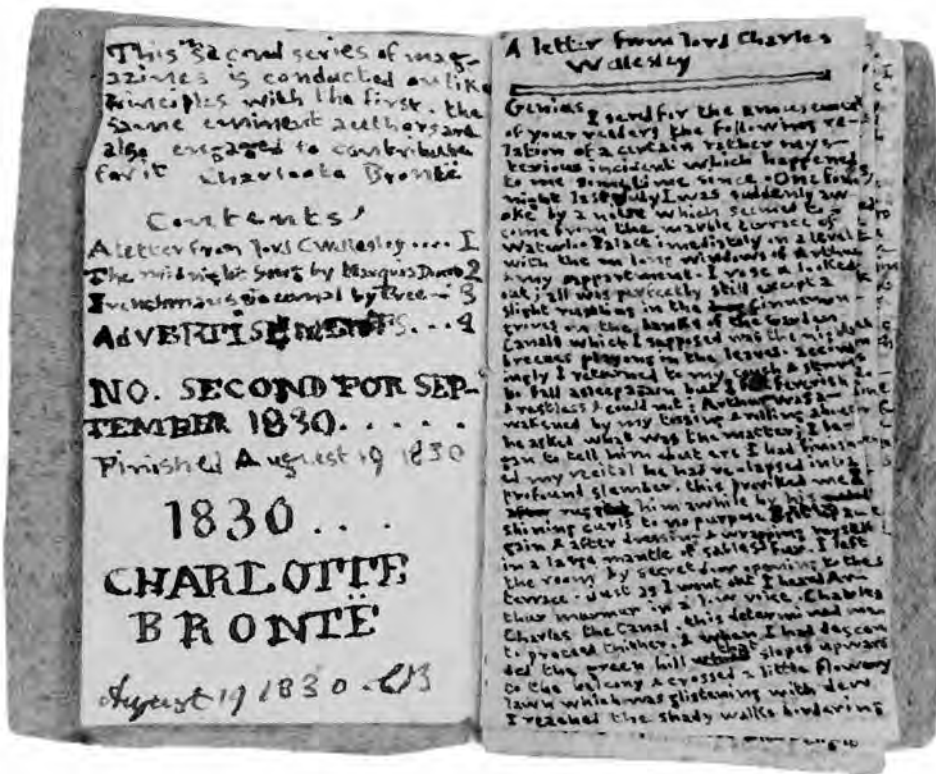 This second series of mag-
azines is conducted on like
Principles with the first. the
same eminent authors are
also engaged to contribute
for it Charlotte Brontë
Contents
A letter from Lord C Wallesley .... 1
The midnight song by Marquis Douro 2
Frenchmans journal by Tree - 3
ADVERTISEMENTS... 4
NO. SECOND FOR SEP-
TEMBER 1830.....
Finished August 19 1830
1830...
CHARLOTTE
BRONTË
August 19 1830. CB
A letter from Lord Charles
Wallesley
Genius I send for the amusement
of your readers the following re-
lation of a certain rather mys-
terious incident which happened
to me sometime since. One fine
night last July I was suddenly aw-
oke by a noise which seemed to
come from the marble terrace of
Waterloo Palace imediately on a level
with the long windows of Arthur
& my appartment. I rose & looked
out; all was perfectly still except a
slight rustling in the Cinnamon-
groves on the banks of the Garden
Canals which I supposed was the night
breezes playing in the leaves. accord-
ingly I returned to my couch & strove
to fall asleep again but feverish
& restless I could not; Arthur was a-
wakened by my tossing & rolling about
he asked what was the matter; I be-
gan to tell him but ere I had finish-
ed my recital he had re-lapsed into a
profound slumber. this provoked me &
after him awhile by his
shining curls to no purpose I up a-
gain & after dressing & wrapping myself
in a large mantle of sables fur. I left
the room by secret door opening to the
terrace. Just as I went out I heard Ar-
thur murmur in a low voice. Charles
Charles the Canal. this determined me
to proceed thither. & when I had descen
ded the green hill that slopes upward
to the balcony & crossed a little flowery
lawn which was glistening with dew
I reached the shady walks bordering